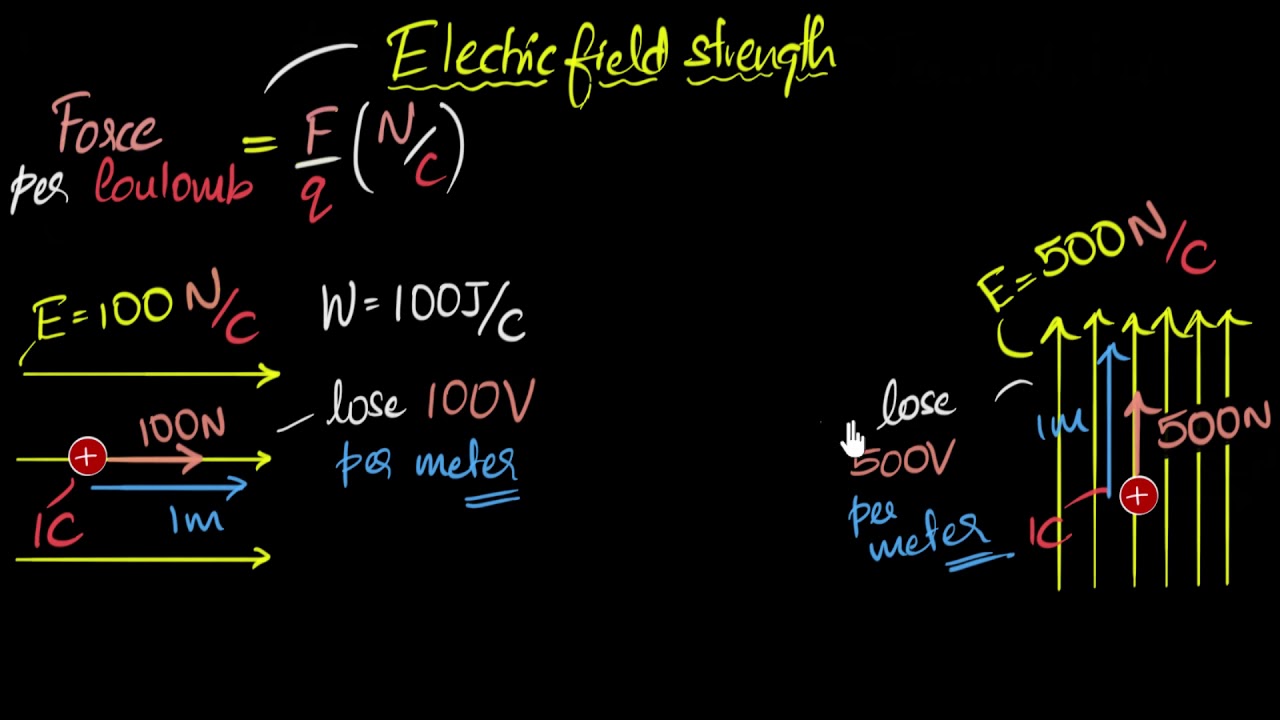 Electric field strength
Force
per Coulomb = F/q (N/C)
E = 100 N/C
W = 100J/C
100N
lose 100V
per meter
+
1C
1m
E = 500 N/C
lose
500V
per
meter
1m
500N
+
1C